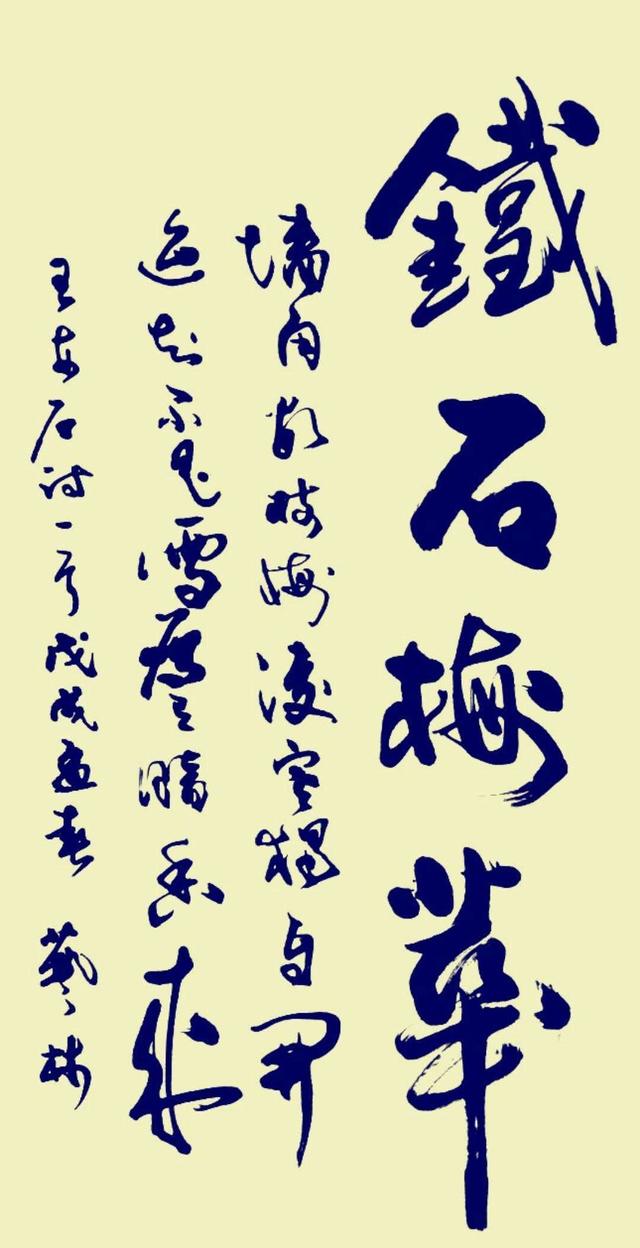 鐵石梅華
墙角數枝梅凌寒獨自開
遥知不是雪為有暗香來
王安石詩一首戊戌孟春 藝林